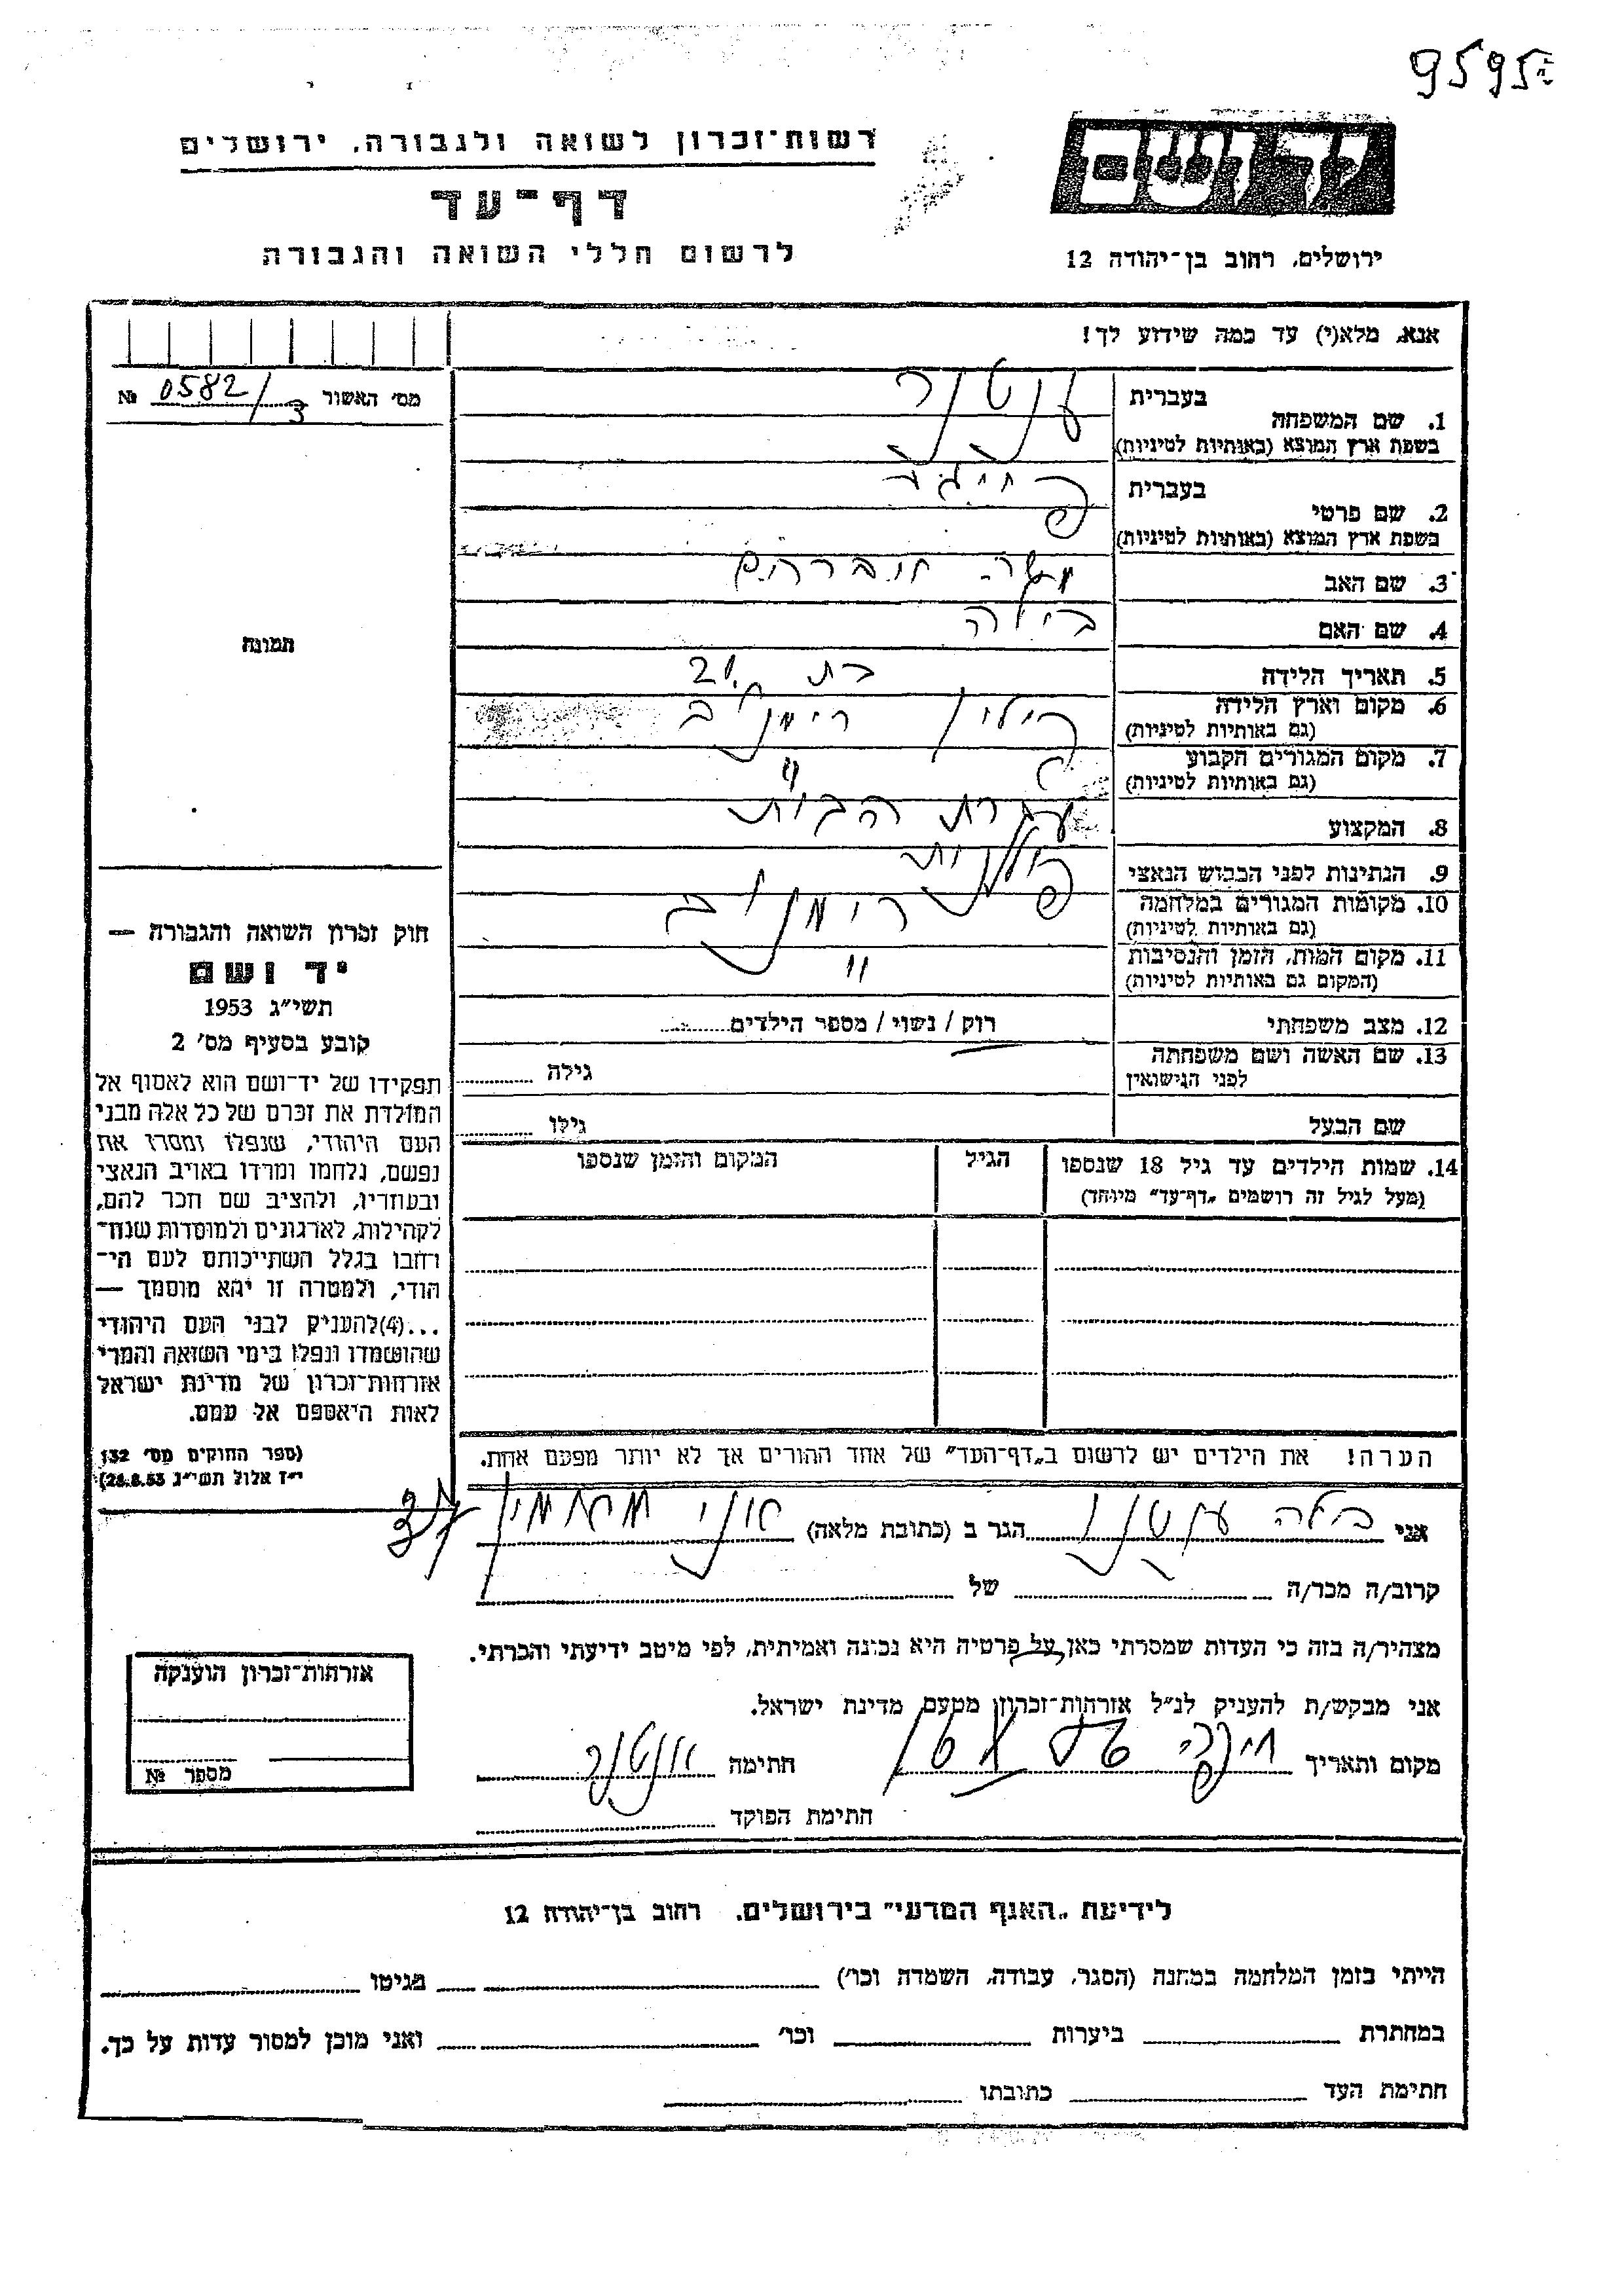 9595
רשות־זכרון לשואה ולגבורה, ירושלים
יד ושם
דף־עד
לרשום חללי השואה והגבורה
ירושלים, רחוב בן־יהודה 12
אנא, מלא(י) עד כמה שידוע לך!
מס' האשור 0582/3 №
בעברית
1. שם המשפחה
בשפת ארץ המוצא (באותיות לטיניות)
בעברית
2. שם פרטי
בשפת ארץ המוצא (באותיות לטיניות)
3. שם האב משה אברהם
4. שם האם בילה
5. תאריך הלידה בת 21
6. מקום וארץ הלידה פולין רימנוב
(גם באותיות לטיניות)
7. מקום המגורים הקבוע "
(גם באותיות לטיניות)
8. המקצוע עקרת הבית
9. הנתינות לפני הכבוש הנאצי פולנית
10. מקומות המגורים במלחמה רימנוב
(גם באותיות לטיניות)
11. מקום המות, הזמן והנסיבות "
(המקום גם באותיות לטיניות)
12. מצב משפחתי רוק / נשוי / מספר הילדים
13. שם האשה ושם משפחתה גילה
לפני הנישואין
שם הבעל גילו
14. שמות הילדים עד גיל 18 שנספו הגיל המקום והזמן שנספו
(מעל לגיל זה רושמים "דף־עד" מיוחד)
הערה! את הילדים יש לרשום ב"דף־העד" של אחד ההורים אך לא יותר מפעם אחת.
תמונה
חוק זכרון השואה והגבורה —
יד ושם
תשי"ג 1953
קובע בסעיף מס' 2
תפקידו של יד־ושם הוא לאסוף אל
המולדת את זכרם של כל אלה מבני
העם היהודי, שנפלו ומסרו את
נפשם, נלחמו ומרדו באויב הנאצי
ובעוזריו, ולהציב שם וזכר להם,
לקהילות, לארגונים ולמוסדות שנח־
רחבו בגלל השתייכותם לעם הי־
הודי, ולמטרה זו יהא מוסמך —
...(4)להעניק לבני העם היהודי
שהושמדו ונפלו בימי השואה והמרי
אזרחות־זכרון של מדינת ישראל
לאות היאספם אל עמם.
(ספר החוקים מס' 132
י"ז אלול תשי"ג 28.8.53)
אני בילה הגר ב (כתובת מלאה)
קרוב/ה מכר/ה של
מצהיר/ה בזה כי העדות שמסרתי כאן על פרטיה היא נכונה ואמיתית, לפי מיטב ידיעתי והכרתי.
אני מבקש/ת להעניק לנ"ל אזרחות־זכרון מטעם מדינת ישראל.
מקום ותאריך חיפה חתימה
חתימת הפוקד
אזרחות־זכרון הוענקה
מספר №
לידיעת "האגף המדעי" בירושלים, רחוב בן־יהודה 12
הייתי בזמן המלחמה במחנה (הסגר, עבודה, השמדה וכו') בגיטו
במחתרת ביערות וכו' ואני מוכן למסור עדות על כך.
חתימת העד כתובתו